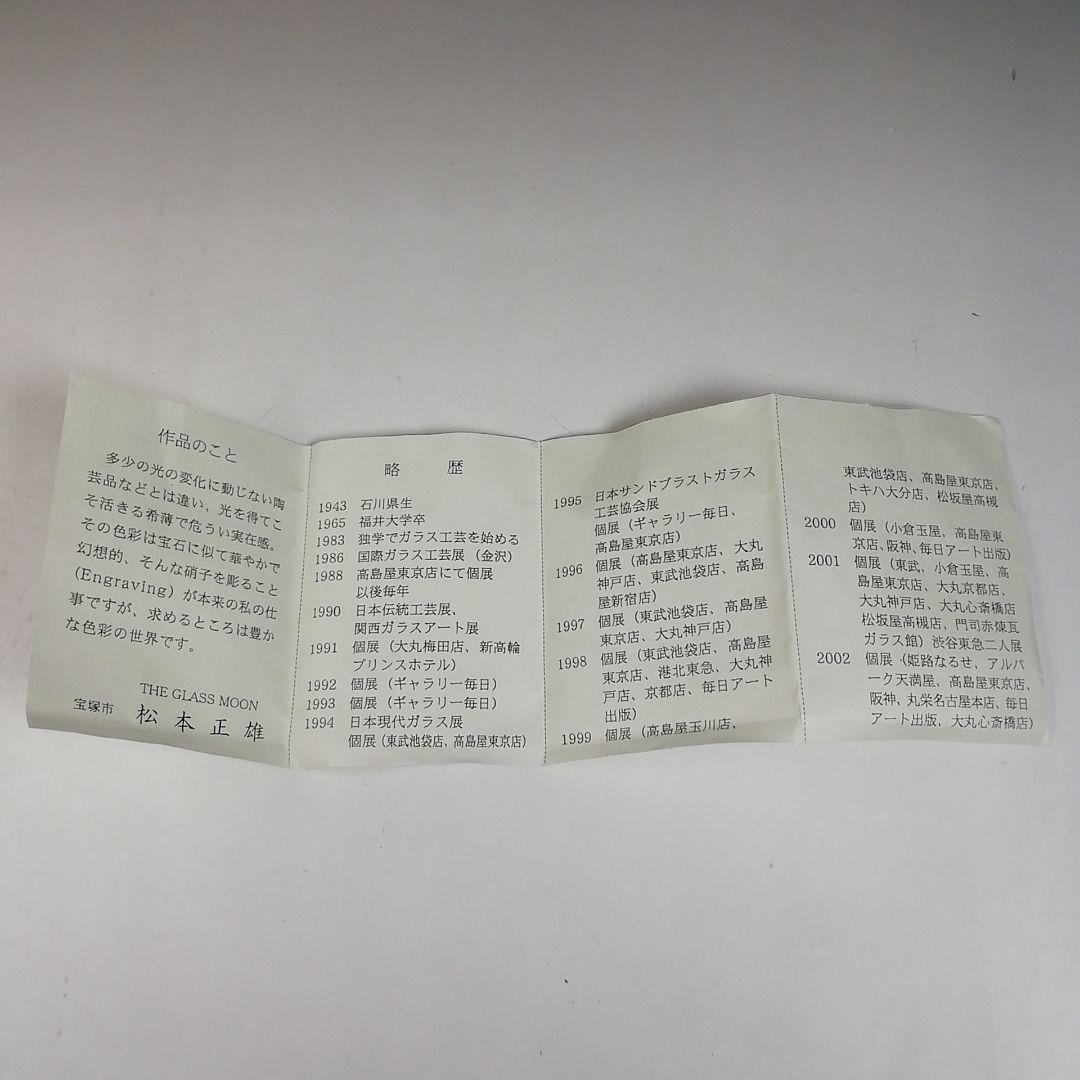 作品のこと
多少の光の変化に動じない陶
芸品などとは違い、光を得てこ
そ活きる希薄で危うい実在感。
その色彩は宝石に似て華やかで
幻想的、そんな硝子を彫ること
(Engraving)が本来の私の仕
事ですが、求めるところは豊か
な色彩の世界です。
THE GLASS MOON
宝塚市 松本正雄
略 歴
1943 石川県生
1965 福井大学卒
1983 独学でガラス工芸を始める
1986 国際ガラス工芸展（金沢）
1988 高島屋東京店にて個展
以後毎年
1990 日本伝統工芸展、
関西ガラスアート展
1991 個展（大丸梅田店、新高輪
プリンスホテル）
1992 個展（ギャラリー毎日）
1993 個展（ギャラリー毎日）
1994 日本現代ガラス展
個展（東武池袋店、高島屋東京店）
1995 日本サンドブラストガラス
工芸協会展
個展（ギャラリー毎日、
高島屋東京店）
1996 個展（高島屋東京店、大丸
神戸店、東武池袋店、高島
屋新宿店）
1997 個展（東武池袋店、高島屋
東京店、大丸神戸店）
1998 個展（東武池袋店、高島屋
東京店、港北東急、大丸神
戸店、京都店、毎日アート
出版）
1999 個展（高島屋玉川店、
東武池袋店、高島屋東京店、
トキハ大分店、松坂屋高槻
店）
2000 個展（小倉玉屋、高島屋東
京店、阪神、毎日アート出版）
2001 個展（東武、小倉玉屋、高
島屋東京店、大丸京都店、
大丸神戸店、大丸心斎橋店
松坂屋高槻店、門司赤煉瓦
ガラス館）渋谷東急二人展
2002 個展（姫路なるせ、アルパ
ーク天満屋、高島屋東京店、
阪神、丸栄名古屋本店、毎日
アート出版、大丸心斎橋店）